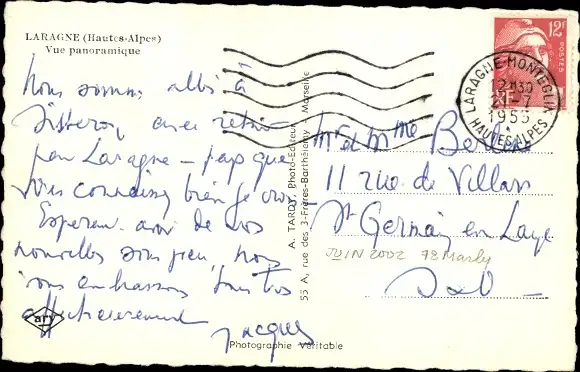 LARAGNE (Hautes-Alpes)
Vue panoramique
Nous sommes allés à
Sisteron avec retour
par Laragne - pays que
vous connaissez bien je crois
Espérons avoir de vos
nouvelles sous peu, nous
vous embrassons tous très
affectueusement
Jacques
ary
Photographie Véritable
A. TARDY, Photo-Editeur
55 A, rue des 3-Frères-Barthélemy - Marseille
12F
POSTES
LARAGNE-MONTEGLIN
12H30
-7
1953
HAUTES-ALPES
Mr et Mme
11 rue de Villars
St Germain en Laye
JUIN 2002 78 Marly
S & O